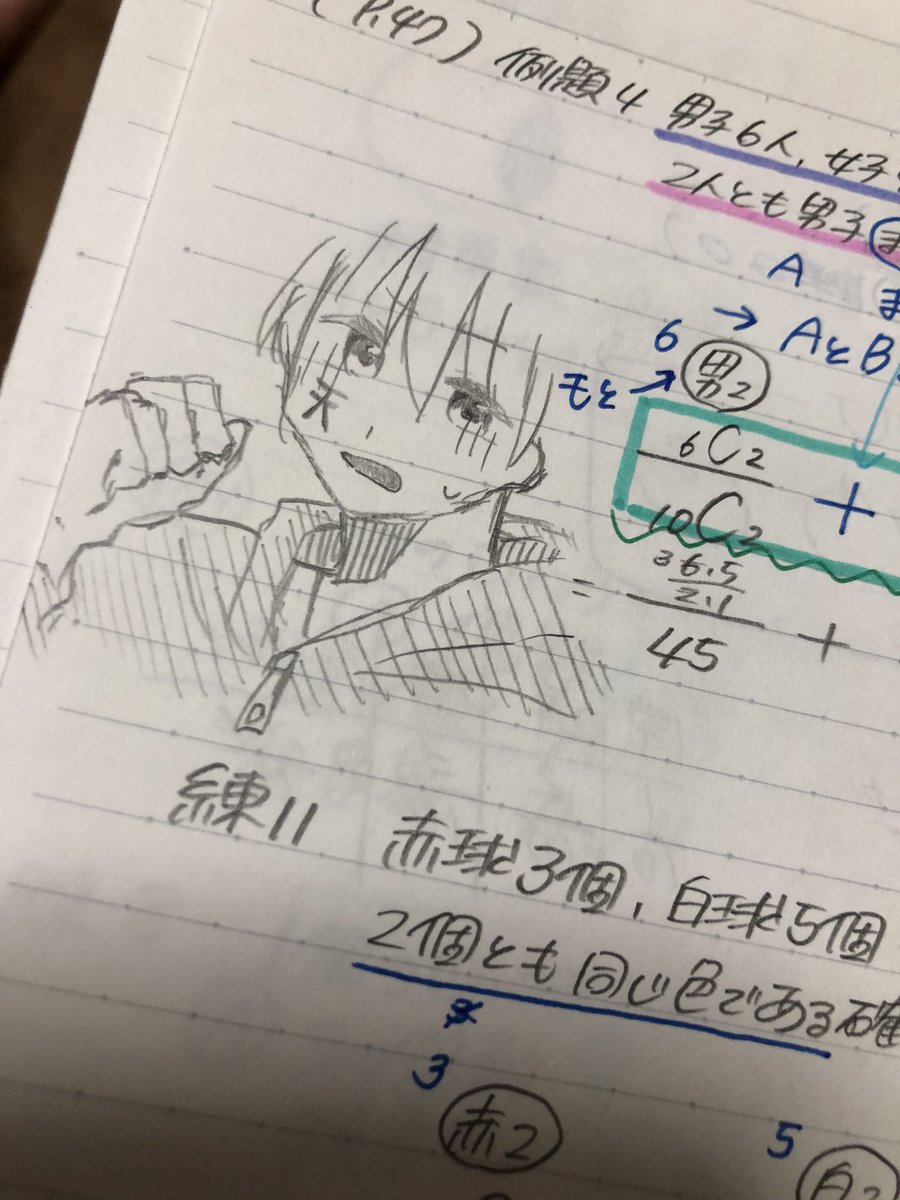 (P.47) 例題4 男子6人, 女子
2人とも男子ま
A
6 → AとB
モと→ 男2
6C2
10C2 +
= 3 6·5
2·1
45 +
練11 赤球3個, 白球5個
2個とも同じ色である確
3
赤2
5
白2